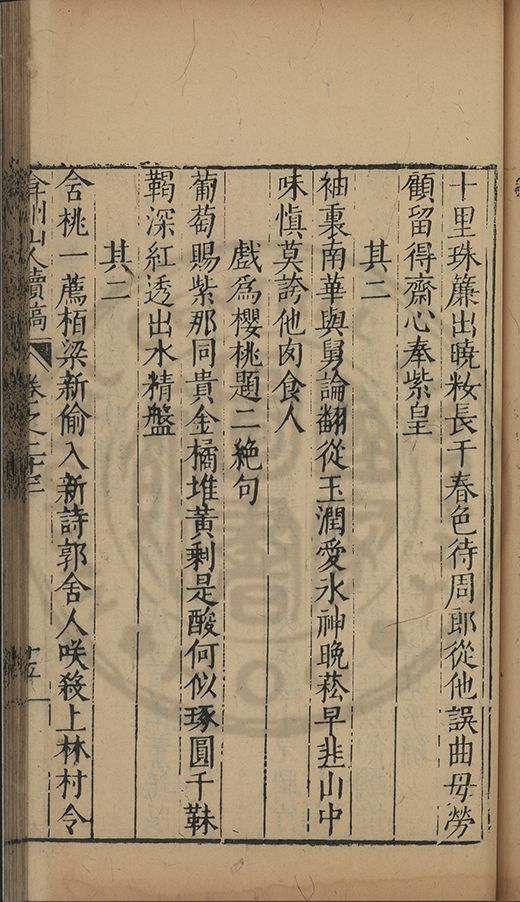 十里珠簾出曉粧長千春色待周郎從他誤曲毋勞
顧留得齋心奉紫皇
其二
袖裏南華與舅論翻從玉潤愛水神晚菘早韭山中
味愼莫誇他肉食人
戲爲櫻桃題二絶句
葡萄賜紫那同貴金橘堆黃剩是酸何似琢圓千靺
鞨深紅透出水精盤
其二
含桃一薦栢梁新偷入新詩郭舍人咲殺上林村令
弇州山人續稿 卷之二十三 十五